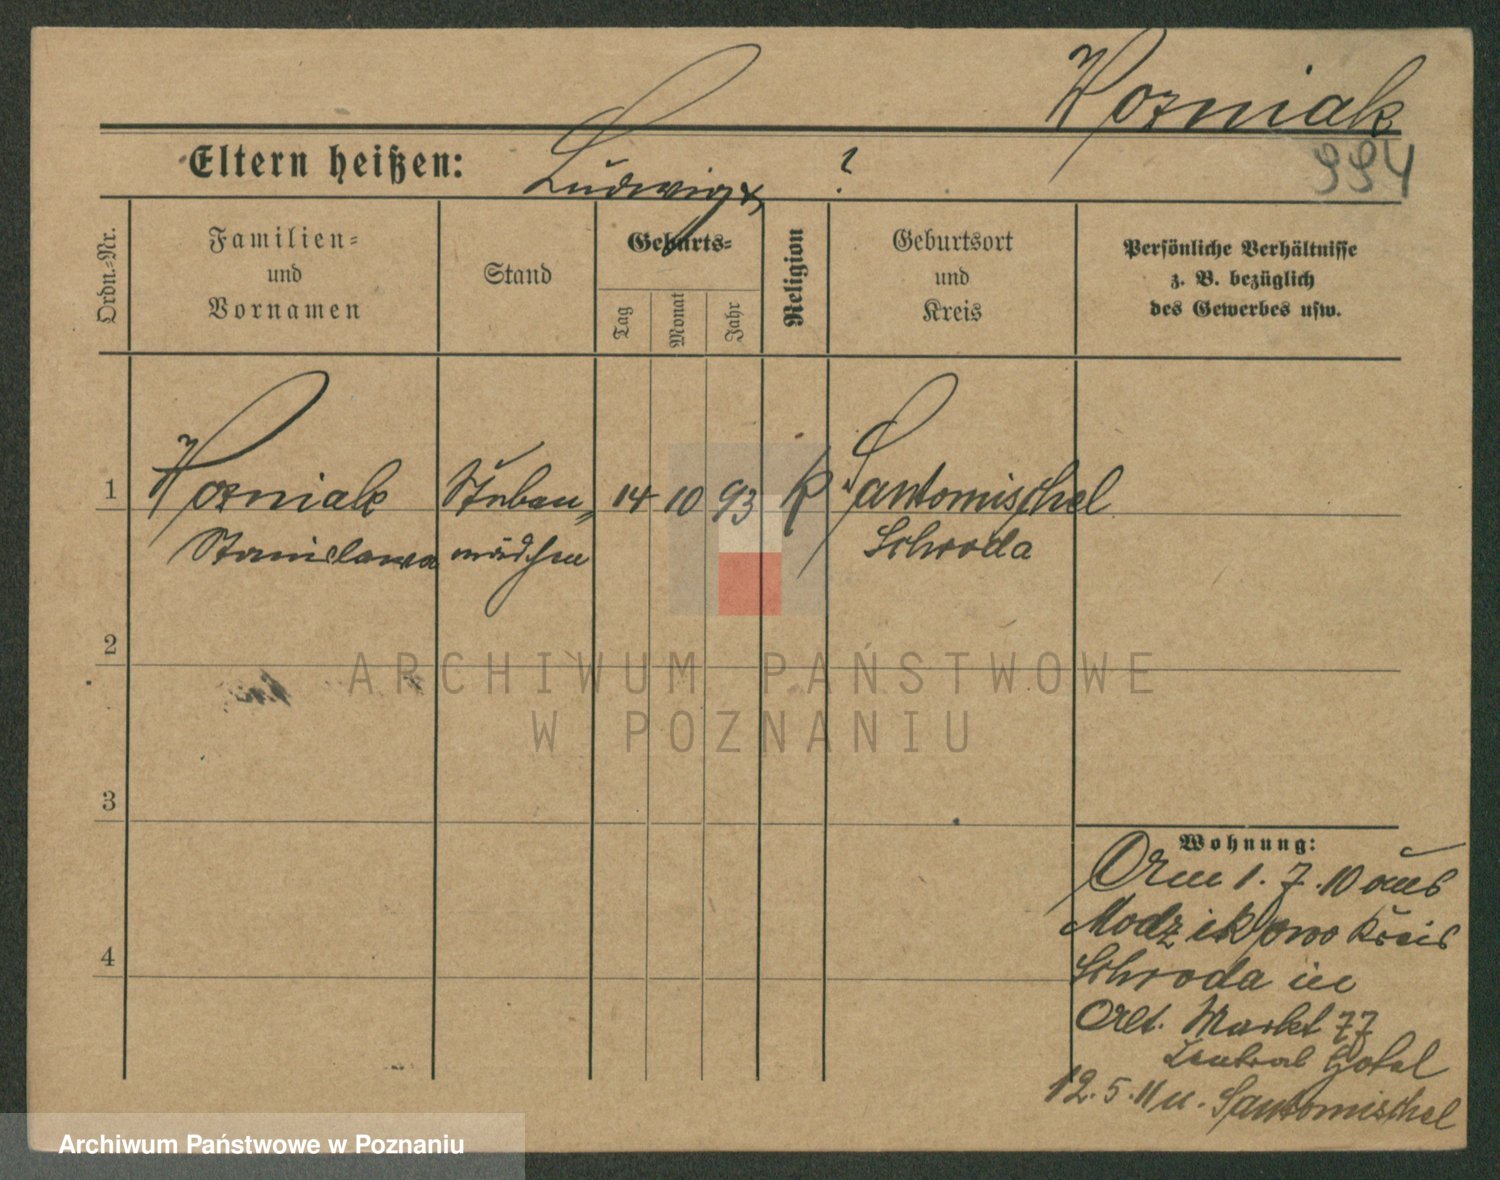 Wozniak
994
Eltern heißen: Ludwig x, ?
Ordn.-Nr.
Familien-
und
Vornamen
Stand
Geburts-
Tag
Monat
Jahr
Religion
Geburtsort
und
Kreis
Persönliche Verhältnisse
z. B. bezüglich
des Gewerbes usw.
1 Wozniak Stuben- 14 10 93 K Santomischel
Stanislawa mädchen Schroda
2
3
4
Wohnung:
Am 1.7.10 aus
Modzikowo Kreis
Schroda in
Alt. Markt 77
Zentral Hotel
12.5.11 n. Santomischel
ARCHIWUM PAŃSTWOWE
W POZNANIU
Archiwum Państwowe w Poznaniu